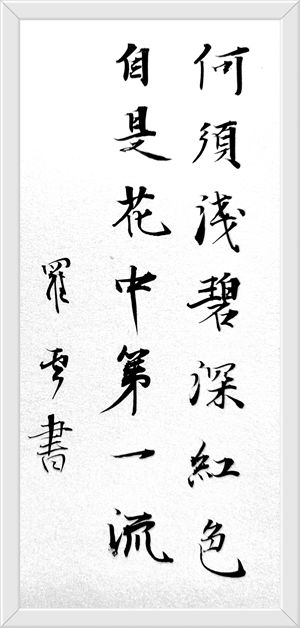 何須淺碧深紅色
自是花中第一流
羅雲書